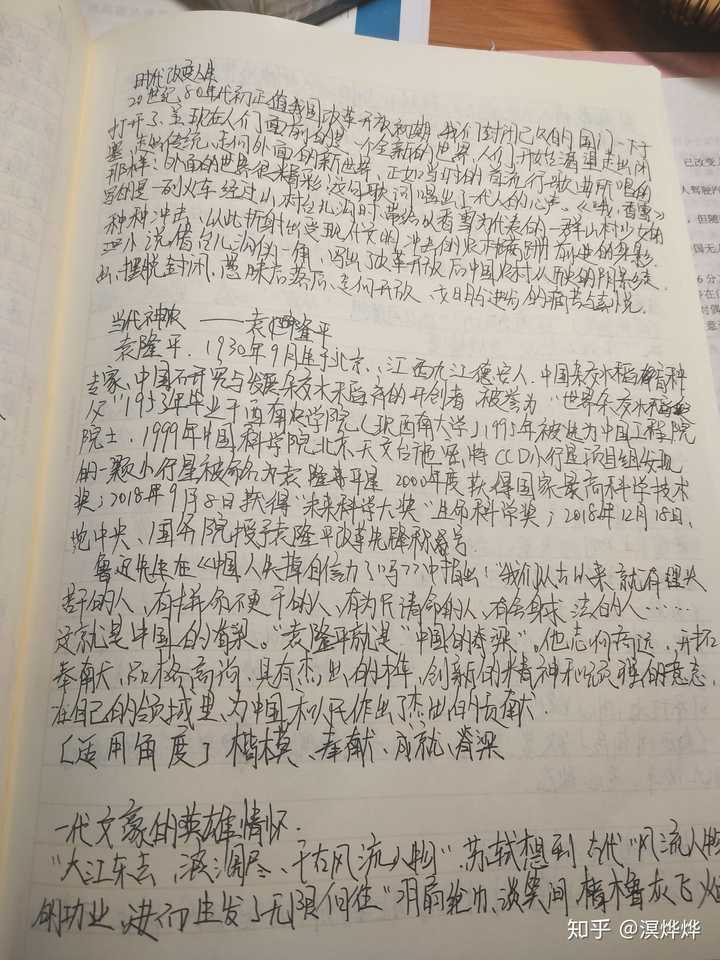 时代改变人生
20世纪80年代初正值我国改革开放初期,我们封闭已久的国门一下子
打开了,呈现在人们面前的是一个全新的世界,人们开始渴望走出闭
塞,走出传统,走向外面的新世界,正如当时的首流行歌曲所唱的
那样:外面的世界很精彩,这句歌词唱出了一代人的心声。《哦,香雪》
写的是一列火车经过小村台儿沟时,带给以香雪为代表的一群山村少女的
种种冲击,以此折射出受现代文明冲击的农村蹒跚前进的身影.
这小说借台儿沟的一角,写出了改革开放后中国农村从历史的阴影
出,摆脱封闭、愚昧落后,走向开放、文明进步的痛苦与喜悦.
当代神农——袁隆平
袁隆平,1930年9月生于北京,江西九江德安人.中国杂交水稻育种
专家,中国研究与发展杂交水稻育的开创者 被誉为"世界杂交水稻
父"1953年毕业于西南农学院(现西南大学)1995年被选为中国工程院
院士.1999年中国科学院北京天文台施密特CCD小行星项目组发现
的一颗小行星被命名为袁隆平星 2000年度获得国家最高科学技术
奖;2018年9月8日获得"未来科学大奖"生命科学奖;2018年12月18日,
党中央、国务院授予袁隆平改革先锋称号
鲁迅先生在《中国人失掉自信力了吗》中指出:"我们从古以来,就有埋头
苦干的人,有拼命硬干的人,有为民请命的人,有舍身求法的人……
这就是中国的脊梁。"袁隆平就是"中国的脊梁"。他志向高远,
奉献大,品格高尚,具有杰出的 创新的精神和顽强的意志,
在自己的领域里,为中国和人民作出了杰出的贡献.
(适用角度)楷模、奉献、成就、脊梁
一代文豪的英雄情怀.
"大江东去,浪淘尽,千古风流人物".苏轼想到古代"风流人物
的功业,进而生发了无限向往"羽扇纶巾,谈笑间,樯橹灰飞烟
已改变
人驾驶汽
但随
国无人
6分
知乎 @溟烨烨